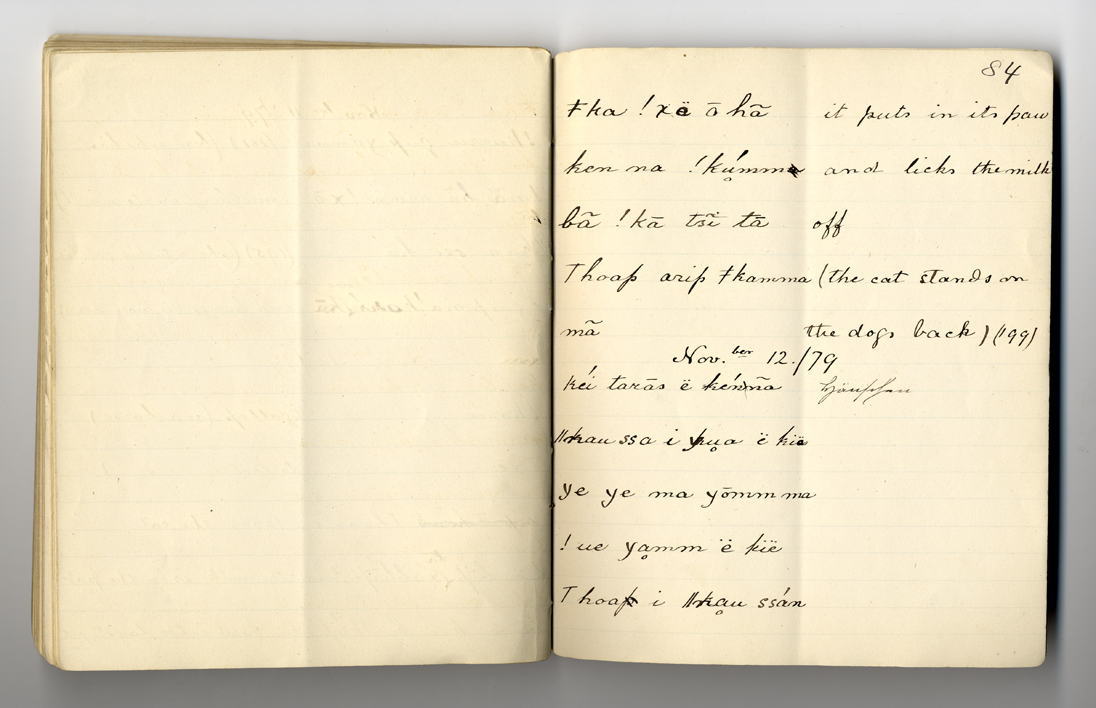 84
ǂka !xë ō hā̃ it puts in its paw
ken na !kú̥mma and licks the milk
bã !kā tsĩ tā off
Thoap arip ǂkamma (the cat stands on
mã the dogs back) (199)
Nov.ber 12./79
kéi tarās ë kénnã
i ku̥a ë kië
ye ye ma yōmm ma
!ue yḁmm ë kië
Thoap i ǁkḁu ssán